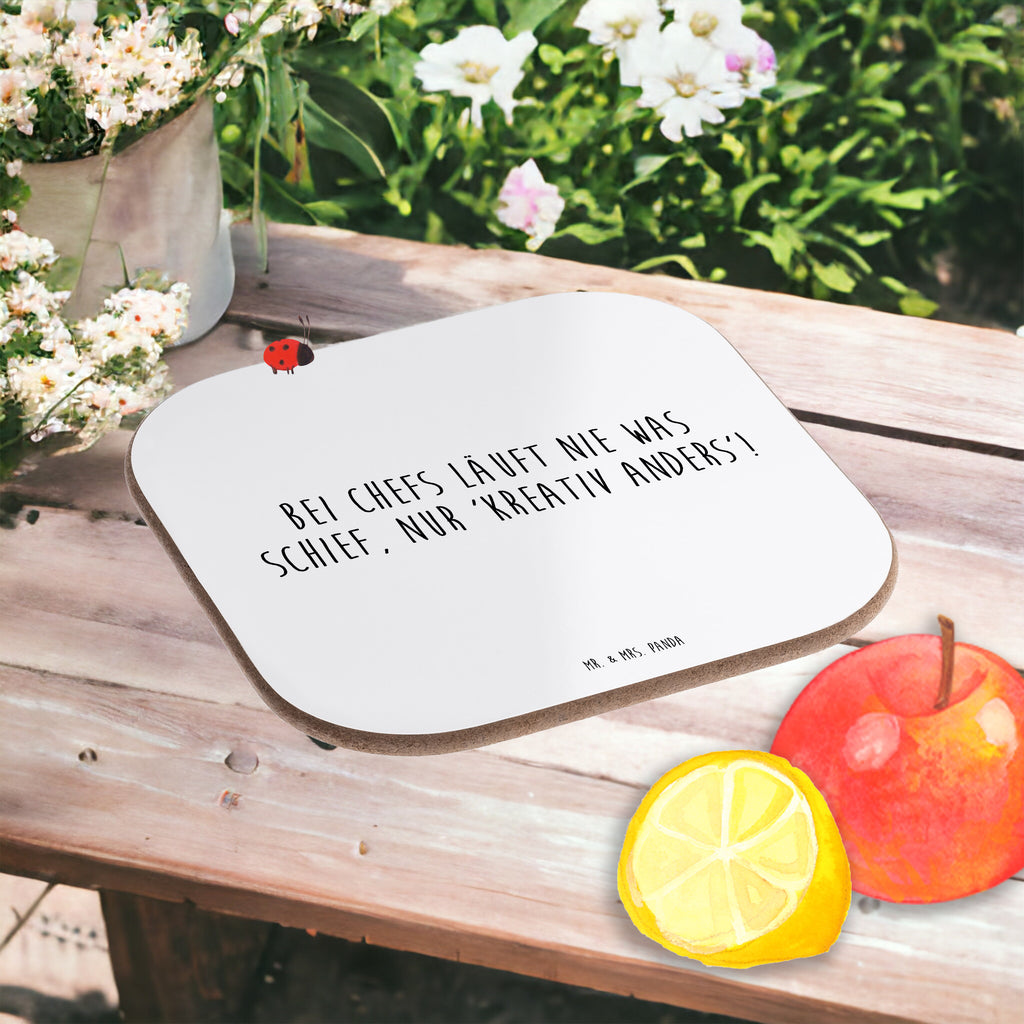 BEI CHEFS LÄUFT NIE WAS
SCHIEF, NUR 'KREATIV ANDERS'!
MR. & MRS. PANDA